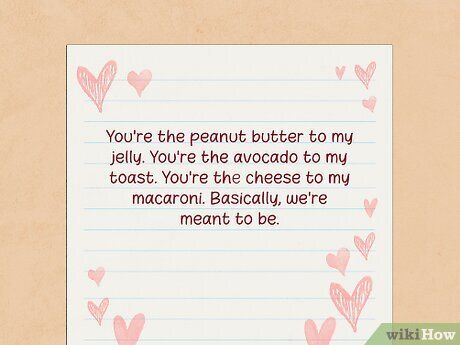 You're the peanut butter to my
jelly. You're the avocado to my
toast. You're the cheese to my
macaroni. Basically, we're
meant to be.
wikiHow